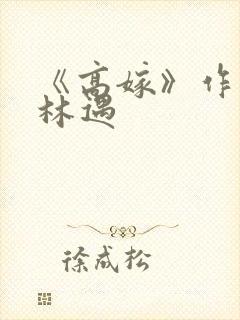 《高嫁》作
林遇
徐成松